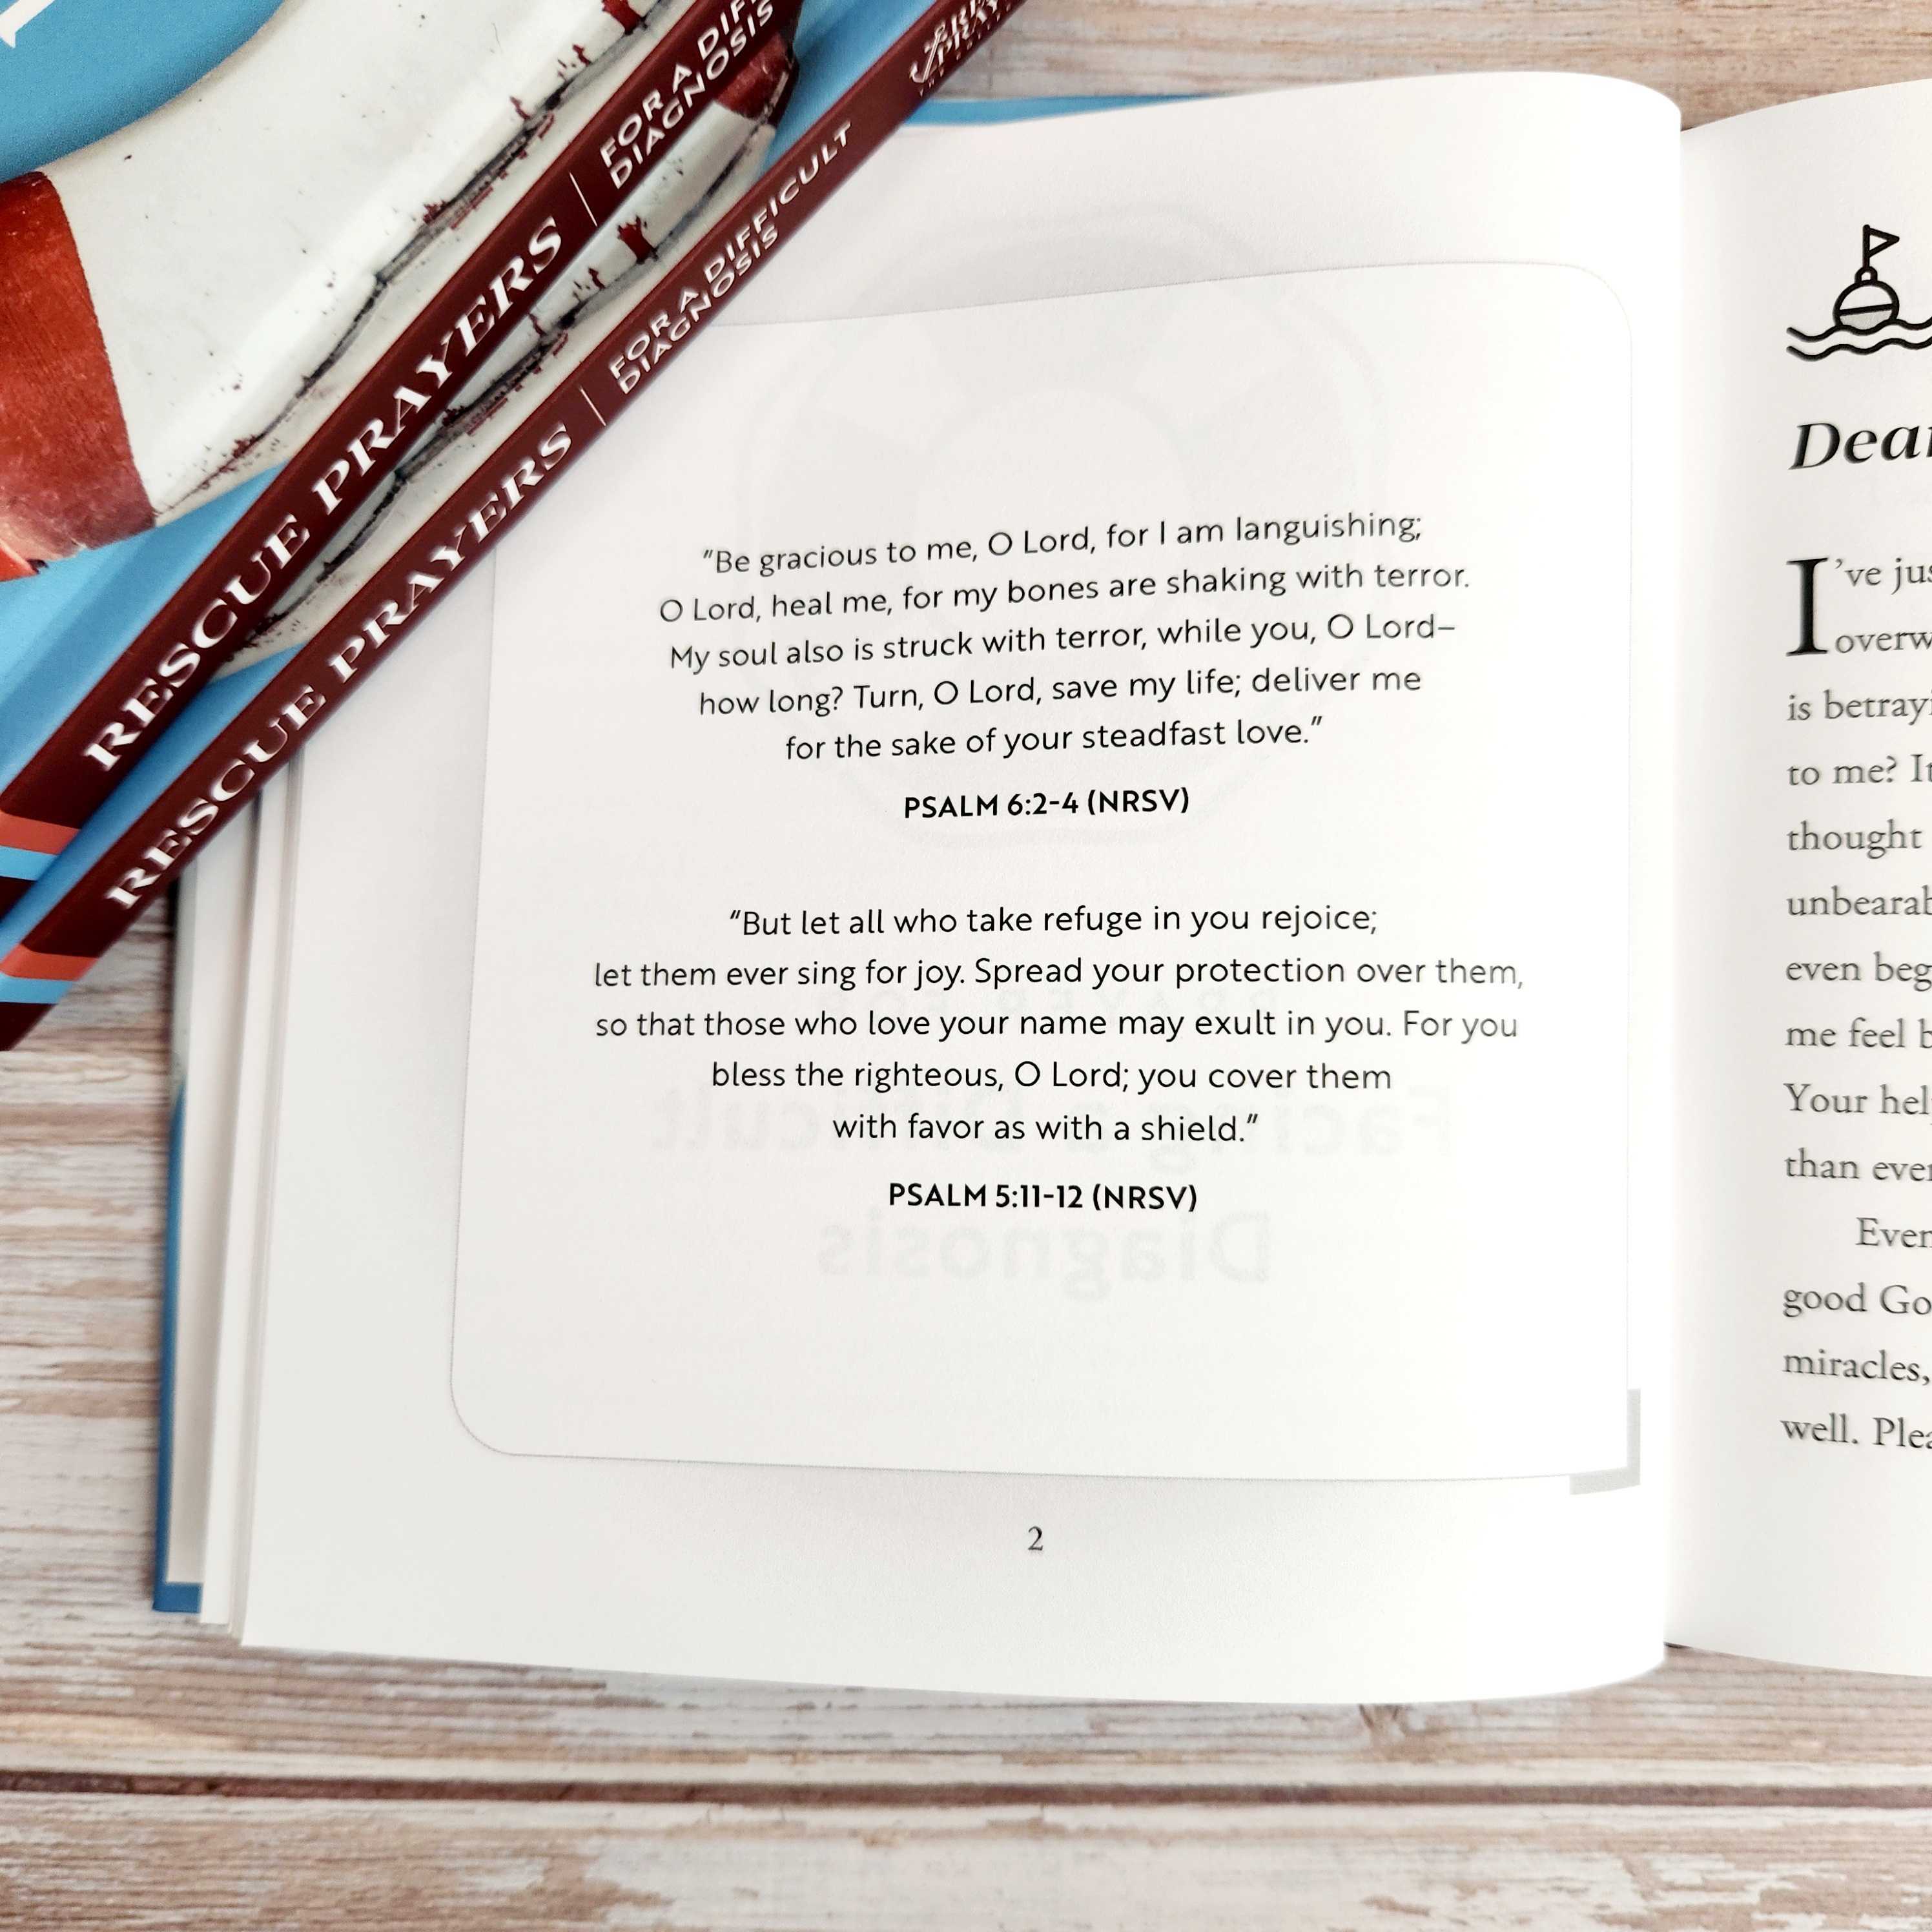 RESCUE PRAYERS | FOR A
DIAGNOSIS
RESCUE PRAYERS | FOR A DIFFICULT
DIAGNOSIS
"Be gracious to me, O Lord, for I am languishing;
O Lord, heal me, for my bones are shaking with terror.
My soul also is struck with terror, while you, O Lord–
how long? Turn, O Lord, save my life; deliver me
for the sake of your steadfast love."
PSALM 6:2-4 (NRSV)
"But let all who take refuge in you rejoice;
let them ever sing for joy. Spread your protection over them,
so that those who love your name may exult in you. For you
bless the righteous, O Lord; you cover them
with favor as with a shield."
PSALM 5:11-12 (NRSV)
2
I've
is
to me? It
thought
even
me feel
Your
than
good
miracles,
well.